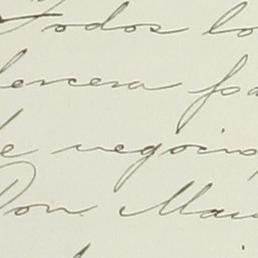 Todos lo
tercera fo
de negocios,
Don Mau